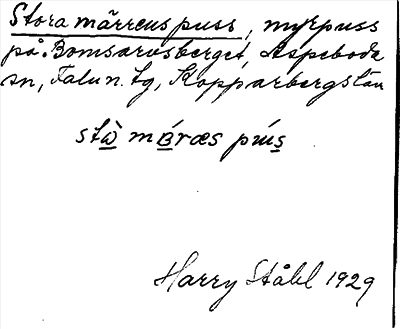 Stora märrens puss, myrpuss
på Bomsarvsberget, Aspeboda
sn, Falu n. tg, Kopparbergs län
stɷ̀ mɞ́ræs pús̱
Harry Ståhl 1929